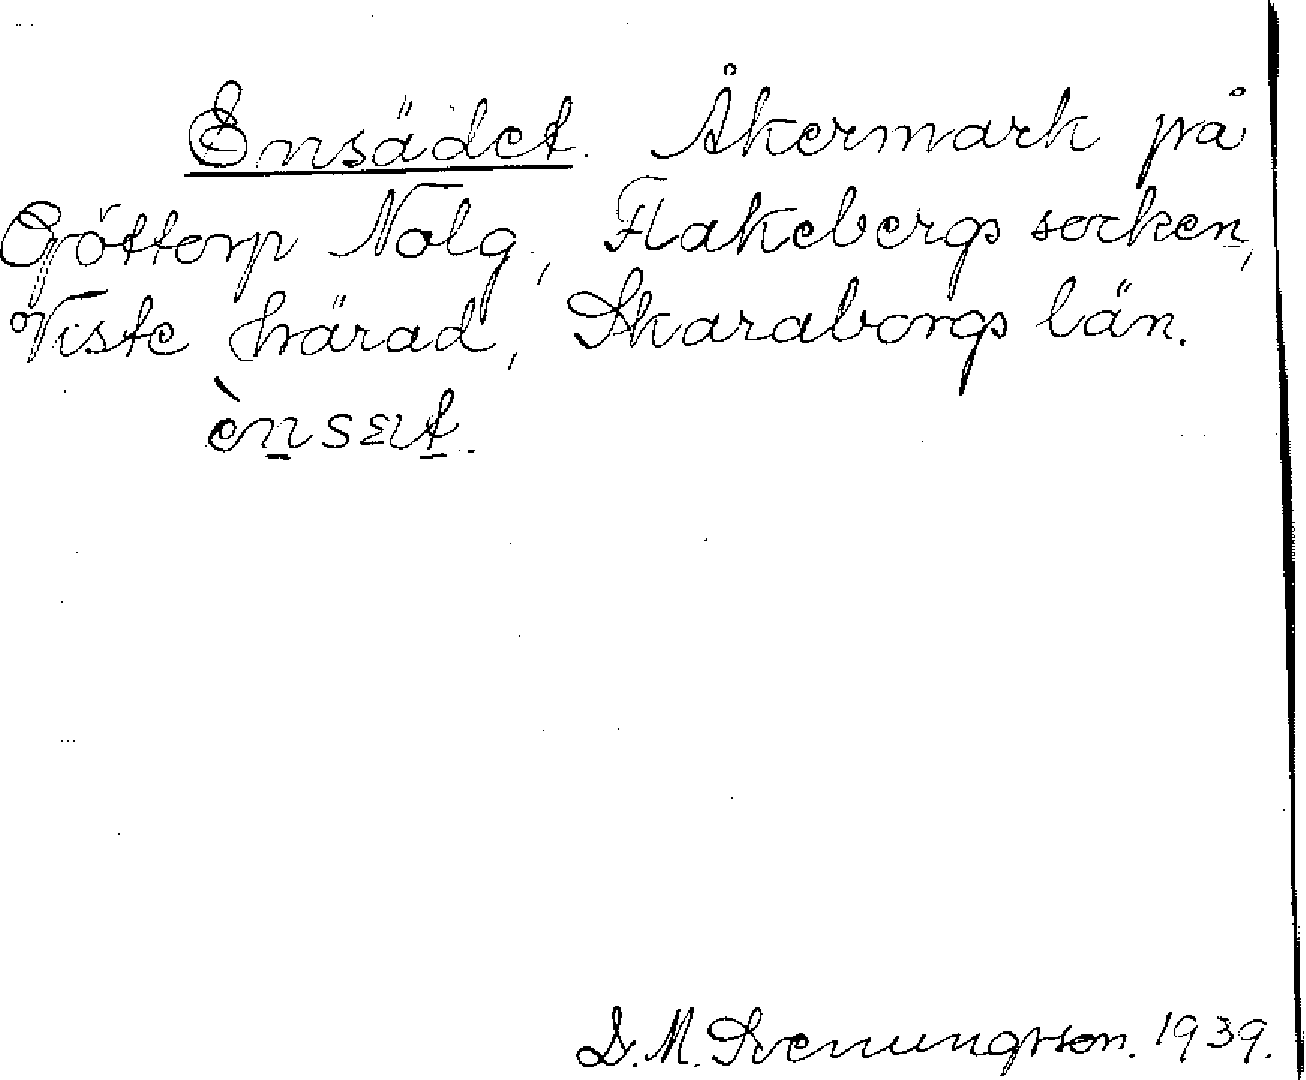 Ensädet. Åkermark på
Göttorp Nolg., Flakebergs socken,
Viste härad, Skaraborgs län.
ènsæt.
D. M. Svenungsson. 1939.